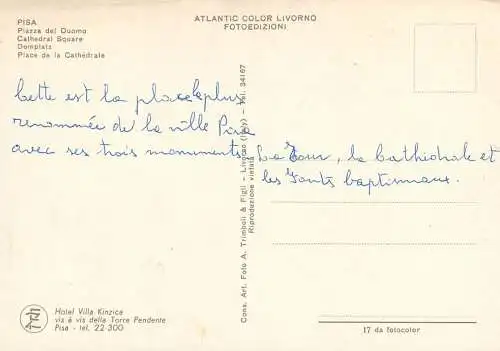 PISA
Piazza del Duomo
Cathedral Square
Domplatz
Place de la Cathédrale
ATLANTIC COLOR LIVORNO
FOTOEDIZIONI
Cette est la place la plus
renommée de la ville Pisa
avec ses trois monuments, La Tour, la Cathédrale et
les Fonts baptismaux.
Cons. Art. Foto A. Trimboli & Figli - Livorno (Italy) - Tel. 34167
Riproduzione vietata
Hotel Villa Kinzica
vis à vis della Torre Pendente
Pisa - tel. 22-300
17 da fotocolor